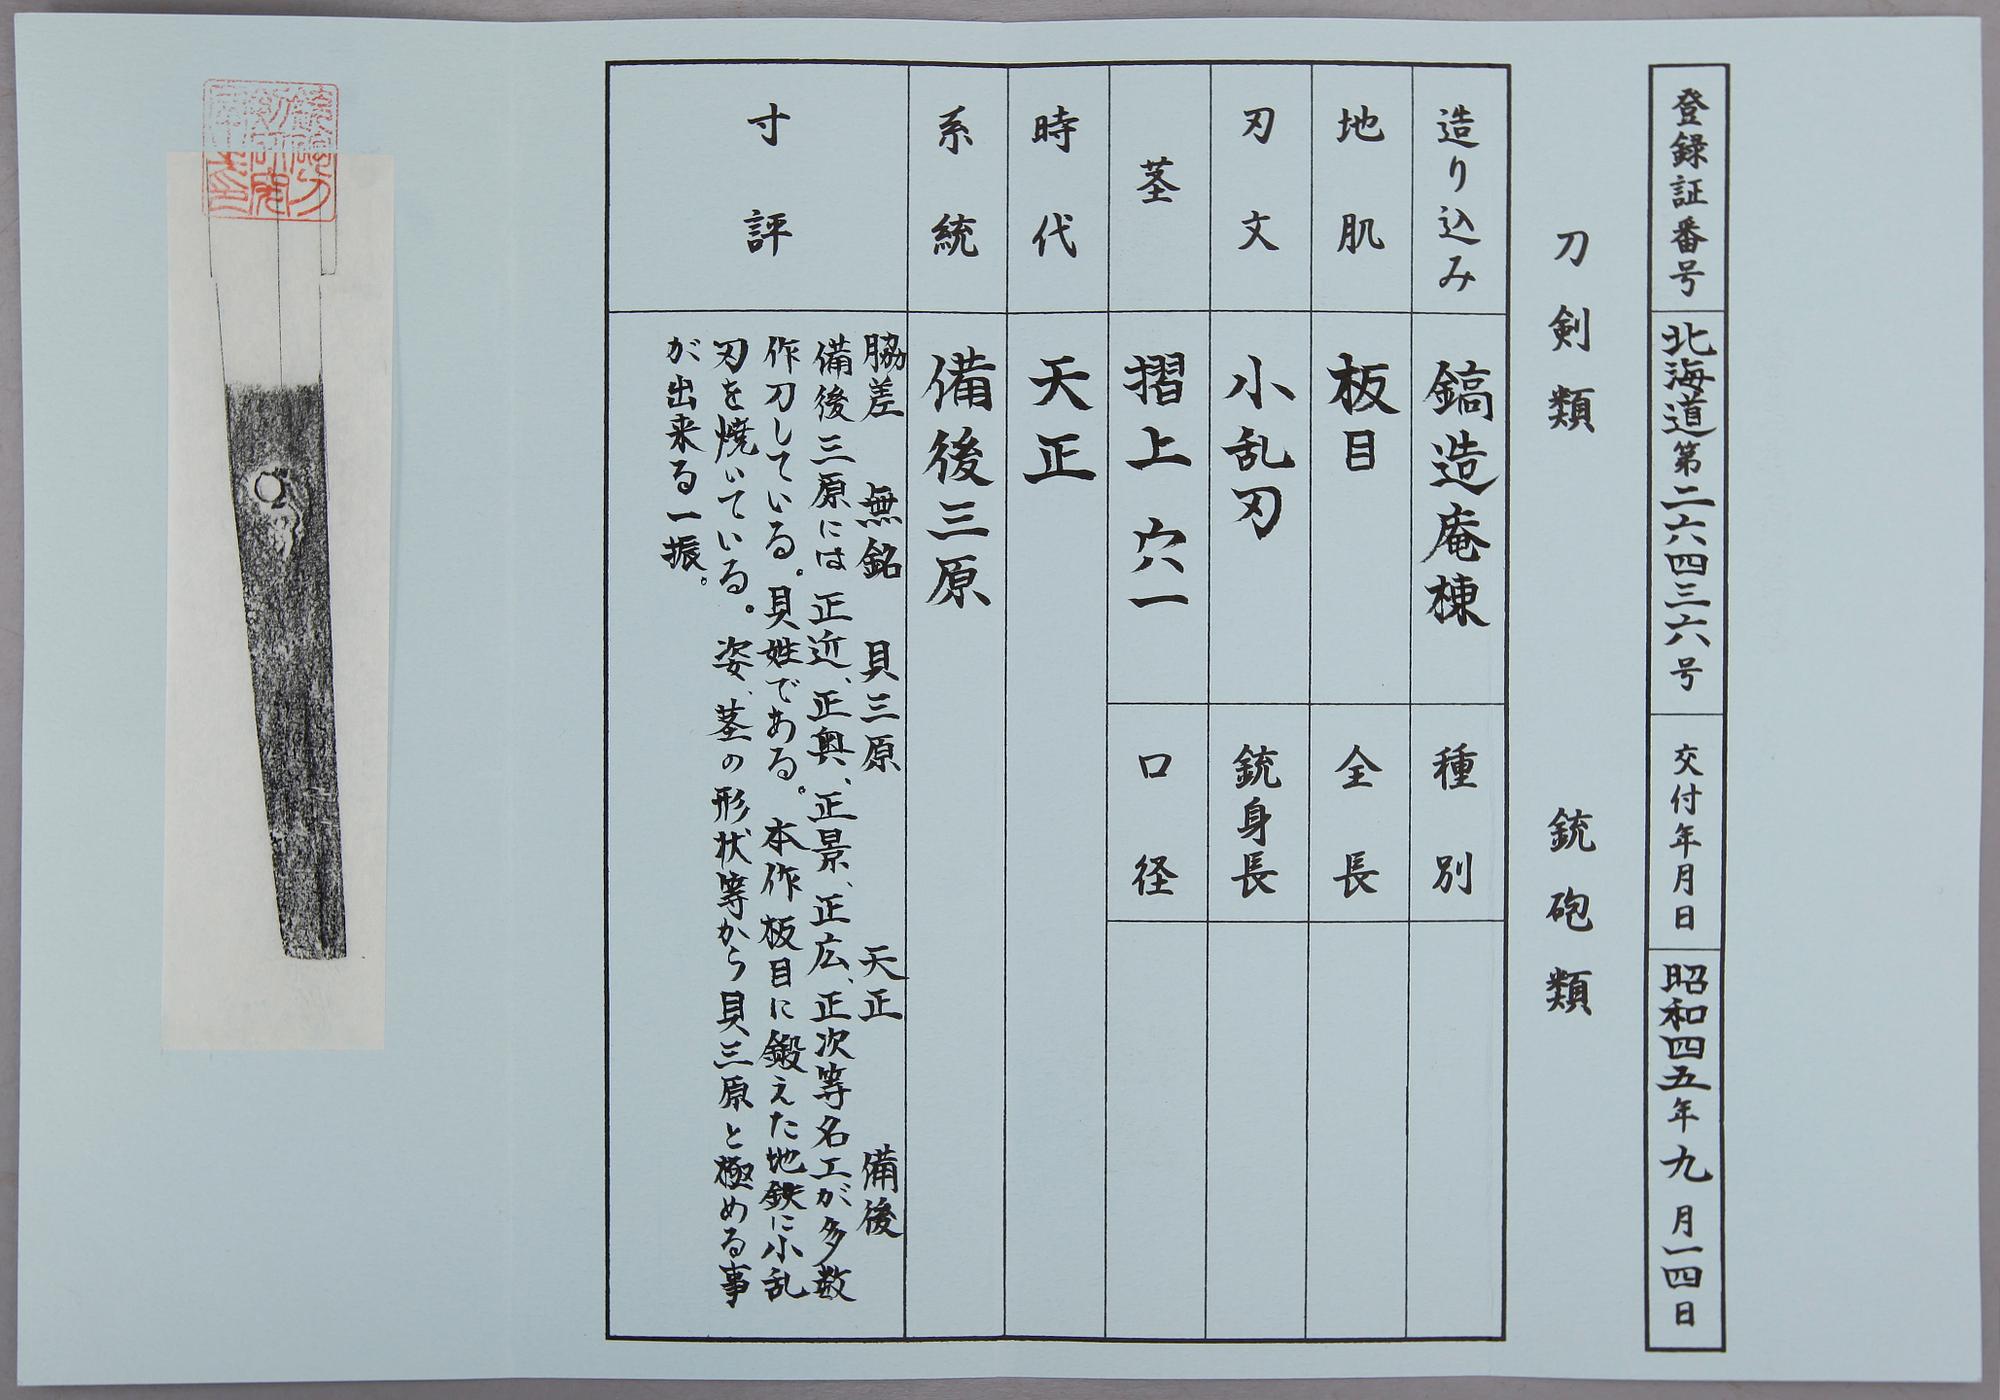 登録証番号 北海道第二六四三六号 交付年月日 昭和四五年九月一四日
刀剣類 銃砲類
造り込み 鎬造庵棟 種別
地肌 板目 全長
刃文 小乱刃 銃身長
茎 摺上 穴一 口径
時代 天正
系統 備後三原
寸評
脇差 無銘 貝三原 天正 備後
備後三原には正近、正奥、正景、正広、正次等名工が多数
作刀している。貝姓である。本作板目に鍛えた地鉄に小乱
刃を焼いている。姿、茎の形状等から貝三原と極める事
が出来る一振。